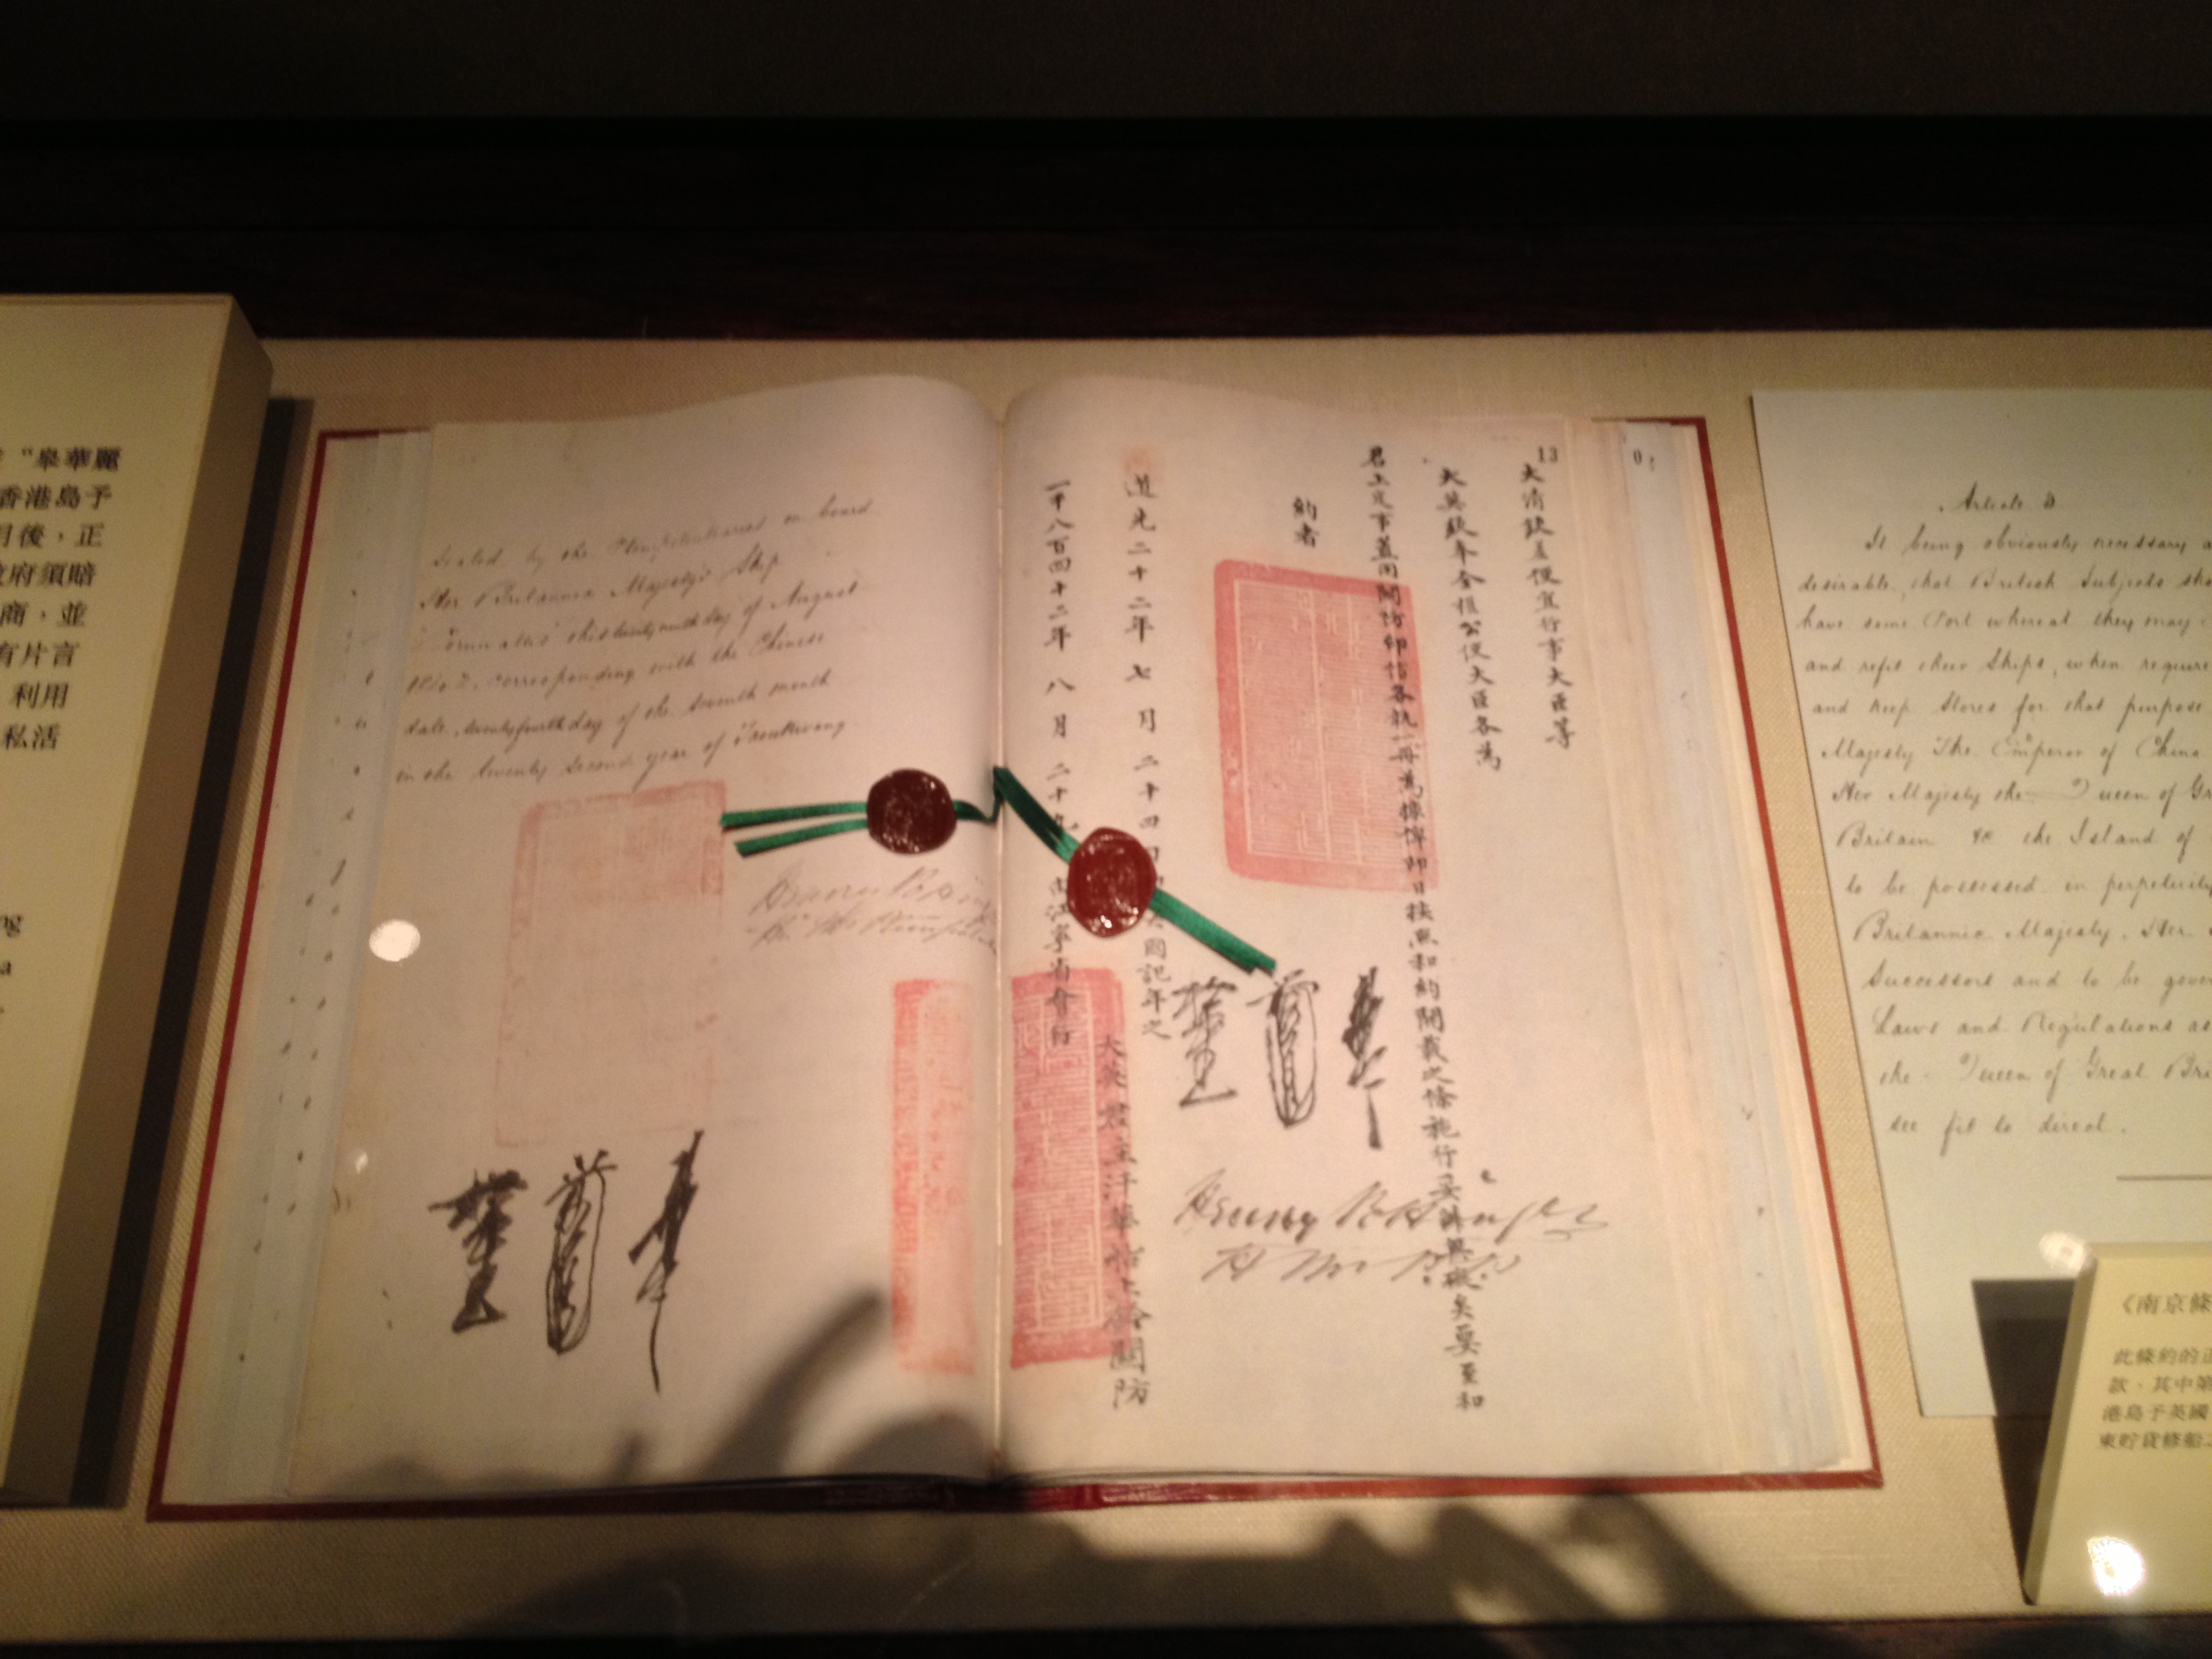 “皋華麗
香港島予
月後，正
府須賠
商，並
有片言
利用
私活
ng
a
Sealed by the Plenipotentiaries on board
Her Britannic Majesty's Ship
this twenty ninth day of August
1842, corresponding with the Chinese
date, twenty fourth day of the seventh month
in the twenty second year of Taoukwang
Henry Pottinger
13
大清欽差便宜行事大臣等
大英欽奉全權公使大臣各為
君上定事蓋用關防印信各執一冊為據俾即日按照和約開載之條施行妥辦無礙矣要至和
約者
道光二十二年七月二十四日即英國記年之
一千八百四十二年八月二十九日由江寧省會行
大英君主汗華船上鈐關防
Henry Pottinger
0
Article 3
It being obviously necessary a
desirable, that British Subjects sho
have some Port whereat they may
and refit their Ships, when require
and keep Stores for that purpose
Majesty The Emperor of China
Her Majesty the Queen of Gr
Britain &c the Island of
to be possessed in perpetuity
Britannic Majesty, Her
Successors and to be gove
Laws and Regulations as
the Queen of Great Bri
see fit to direct.
《南京條
此條約的正
款，其中第
港島予英國
東貯貨修船